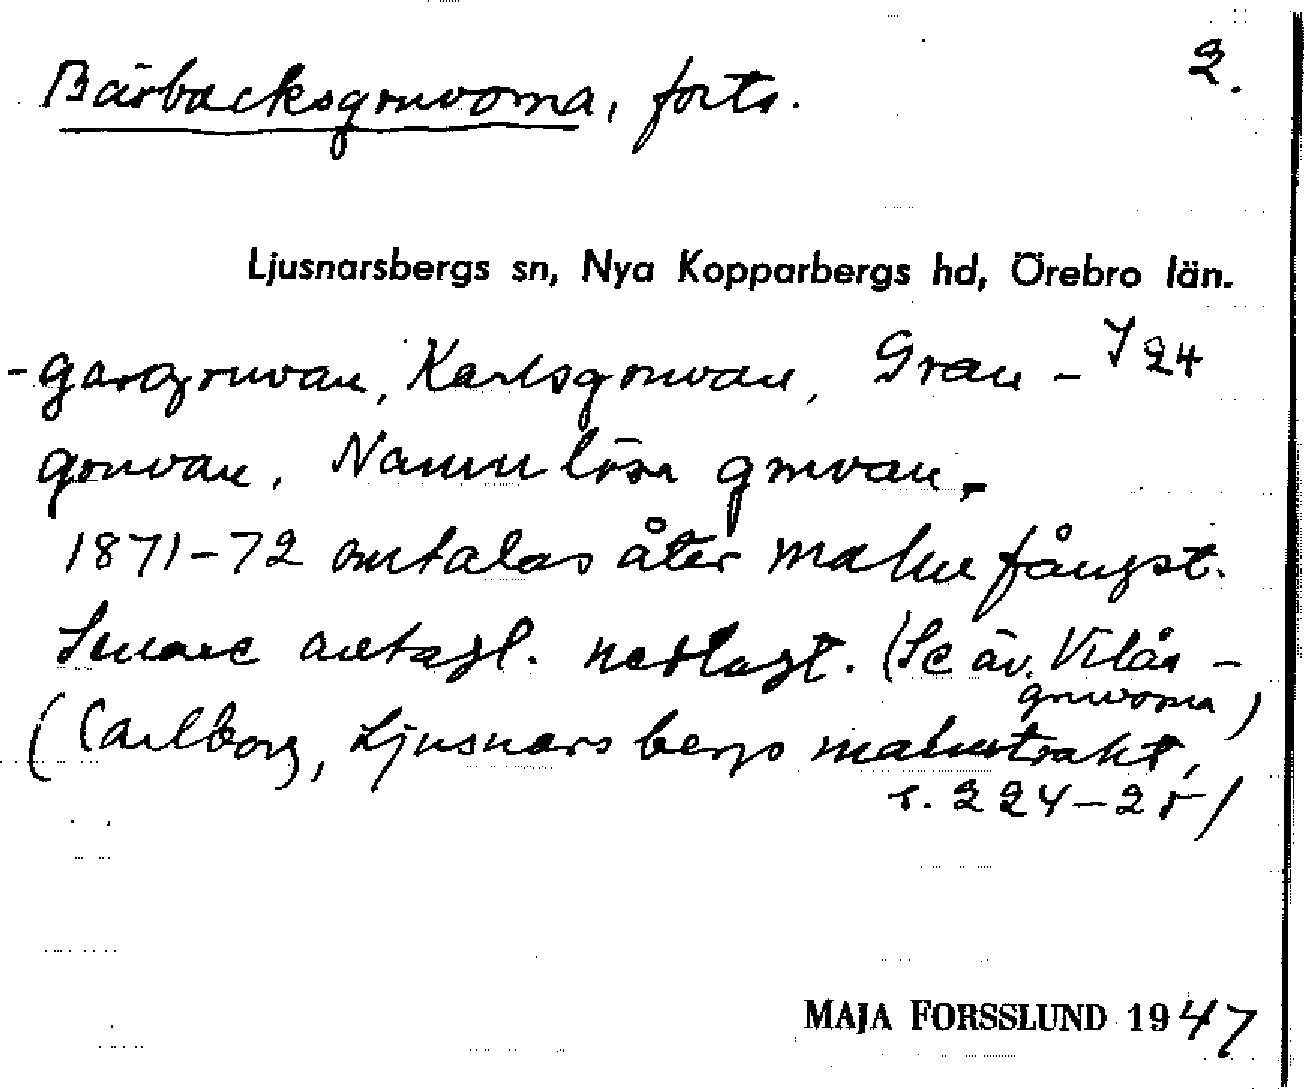 Bärbacksgruvorna, forts. 2.
Ljusnarsbergs sn, Nya Kopparbergs hd, Örebro län.
-gargruvan, Karlsgruvan, Gran- J 24
gruvan, Namnlösa gruvan.
1871-72 omtalas åter malmfångst.
Senare antagl. nedlagt. (Se äv. Vilås-
gruvorna)
(Carlborg, Ljusnarsbergs malmtrakt,
s. 224-25/
MAJA FORSSLUND 1947